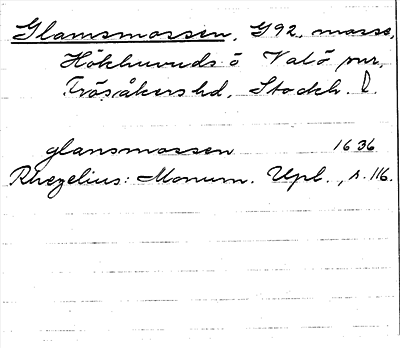 Glamsmossen, G92, mosse,
Hökhuvuds o Valö snr,
Frösåkers hd, Stockh. l.
glansmossen 1636
Rhezelius: Monum. Upl., s. 116.